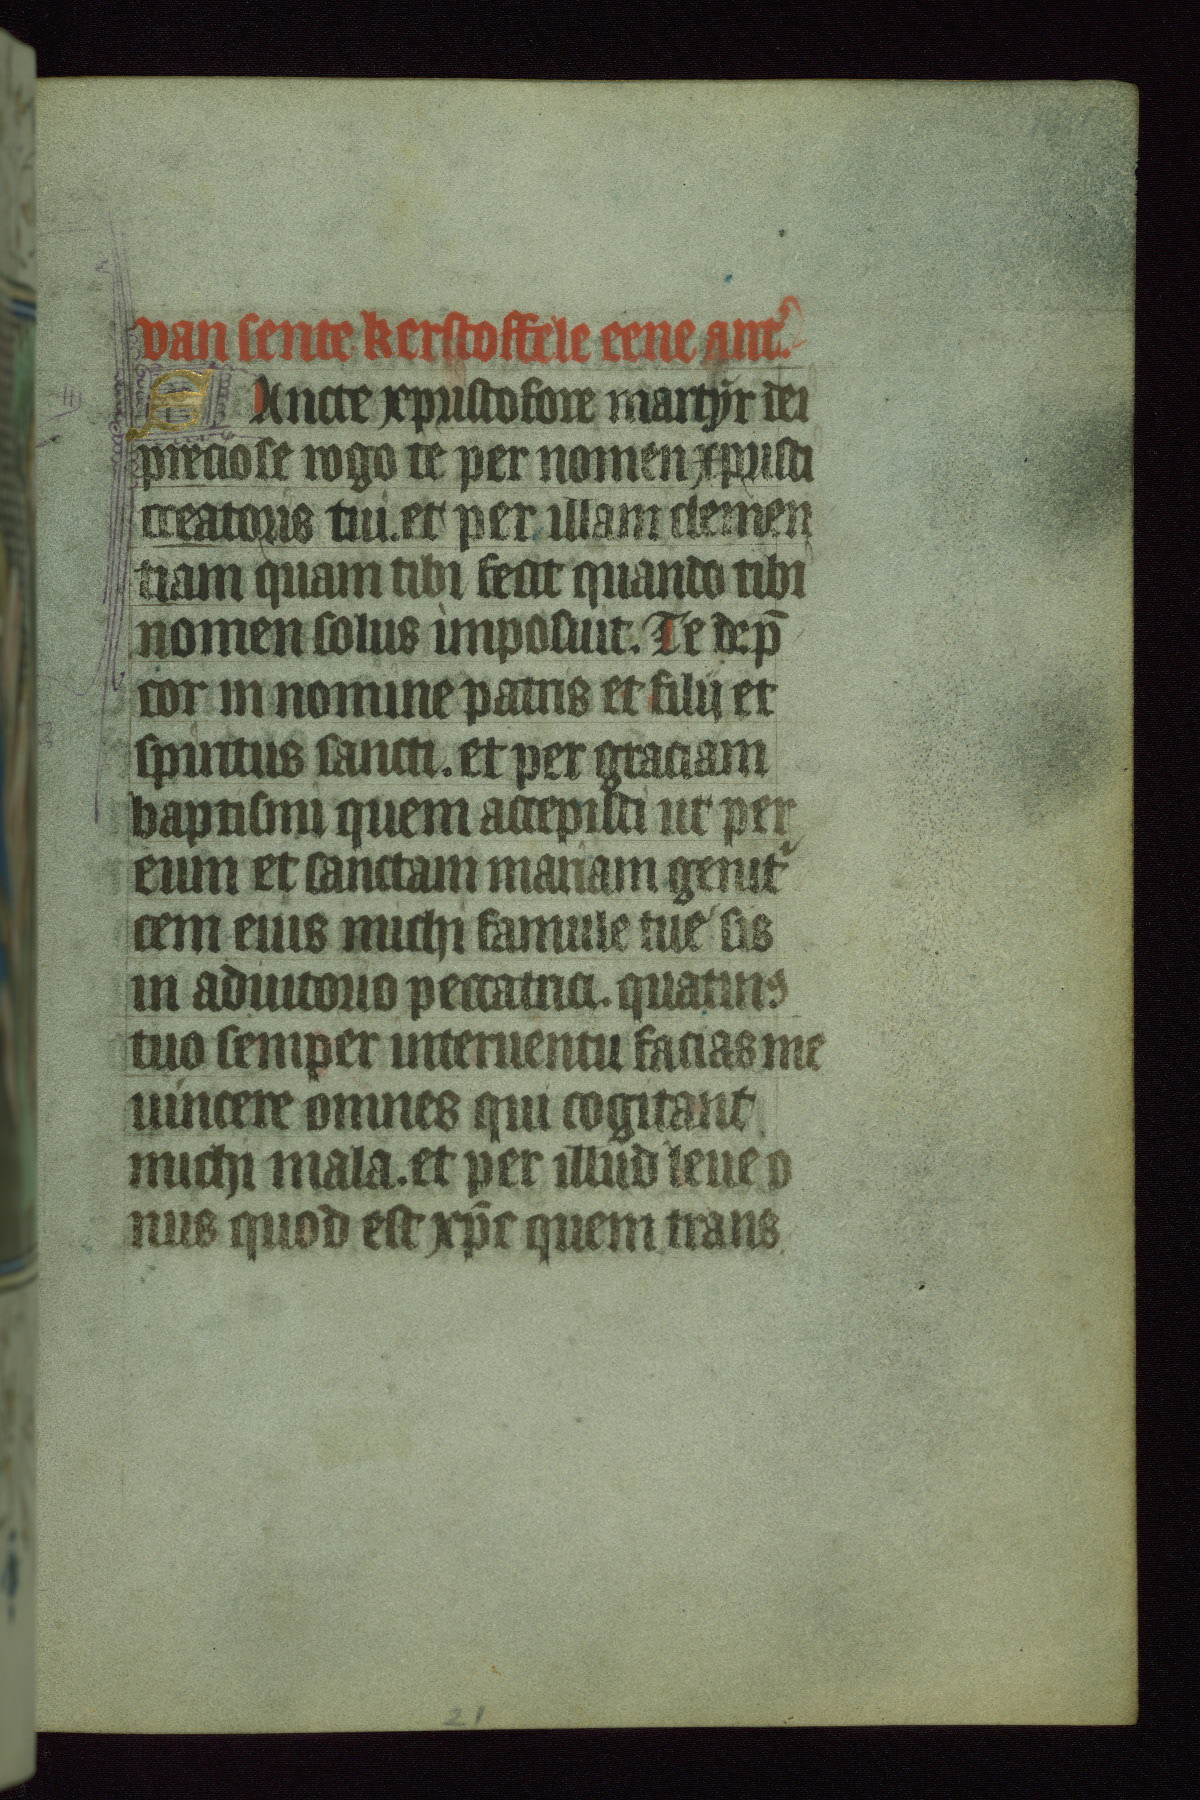 van sente kerstoffele eene ant'
SAncte xpristofore martyr dei
preciose rogo te per nomen xpristi
creatoris tui. et per illam clemen
tiam quam tibi fecit quando tibi
nomen solus imposuit. Te dep̄
cor in nomine patris et filij et
spiritus sancti. et per graciam
baptismi quem accepisti ut per
eum et sanctam mariam genit'
cem eius michi famule tue sis
in adiutorio peccatrici. quatinus
tuo semper interuentu facias me
uincere omnes qui cogitant
michi mala. et per illud leue o
nus quod est xp̄c quem trans
21